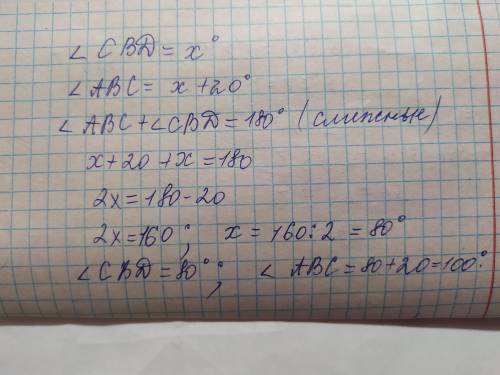 ∠ CBD = x°
∠ ABC = x + 20°
∠ ABC + ∠ CBD = 180° (смежные)
x + 20 + x = 180
2x = 180 - 20
2x = 160 ; x = 160 : 2 = 80°
∠ CBD = 80° ; ∠ ABC = 80 + 20 = 100°.